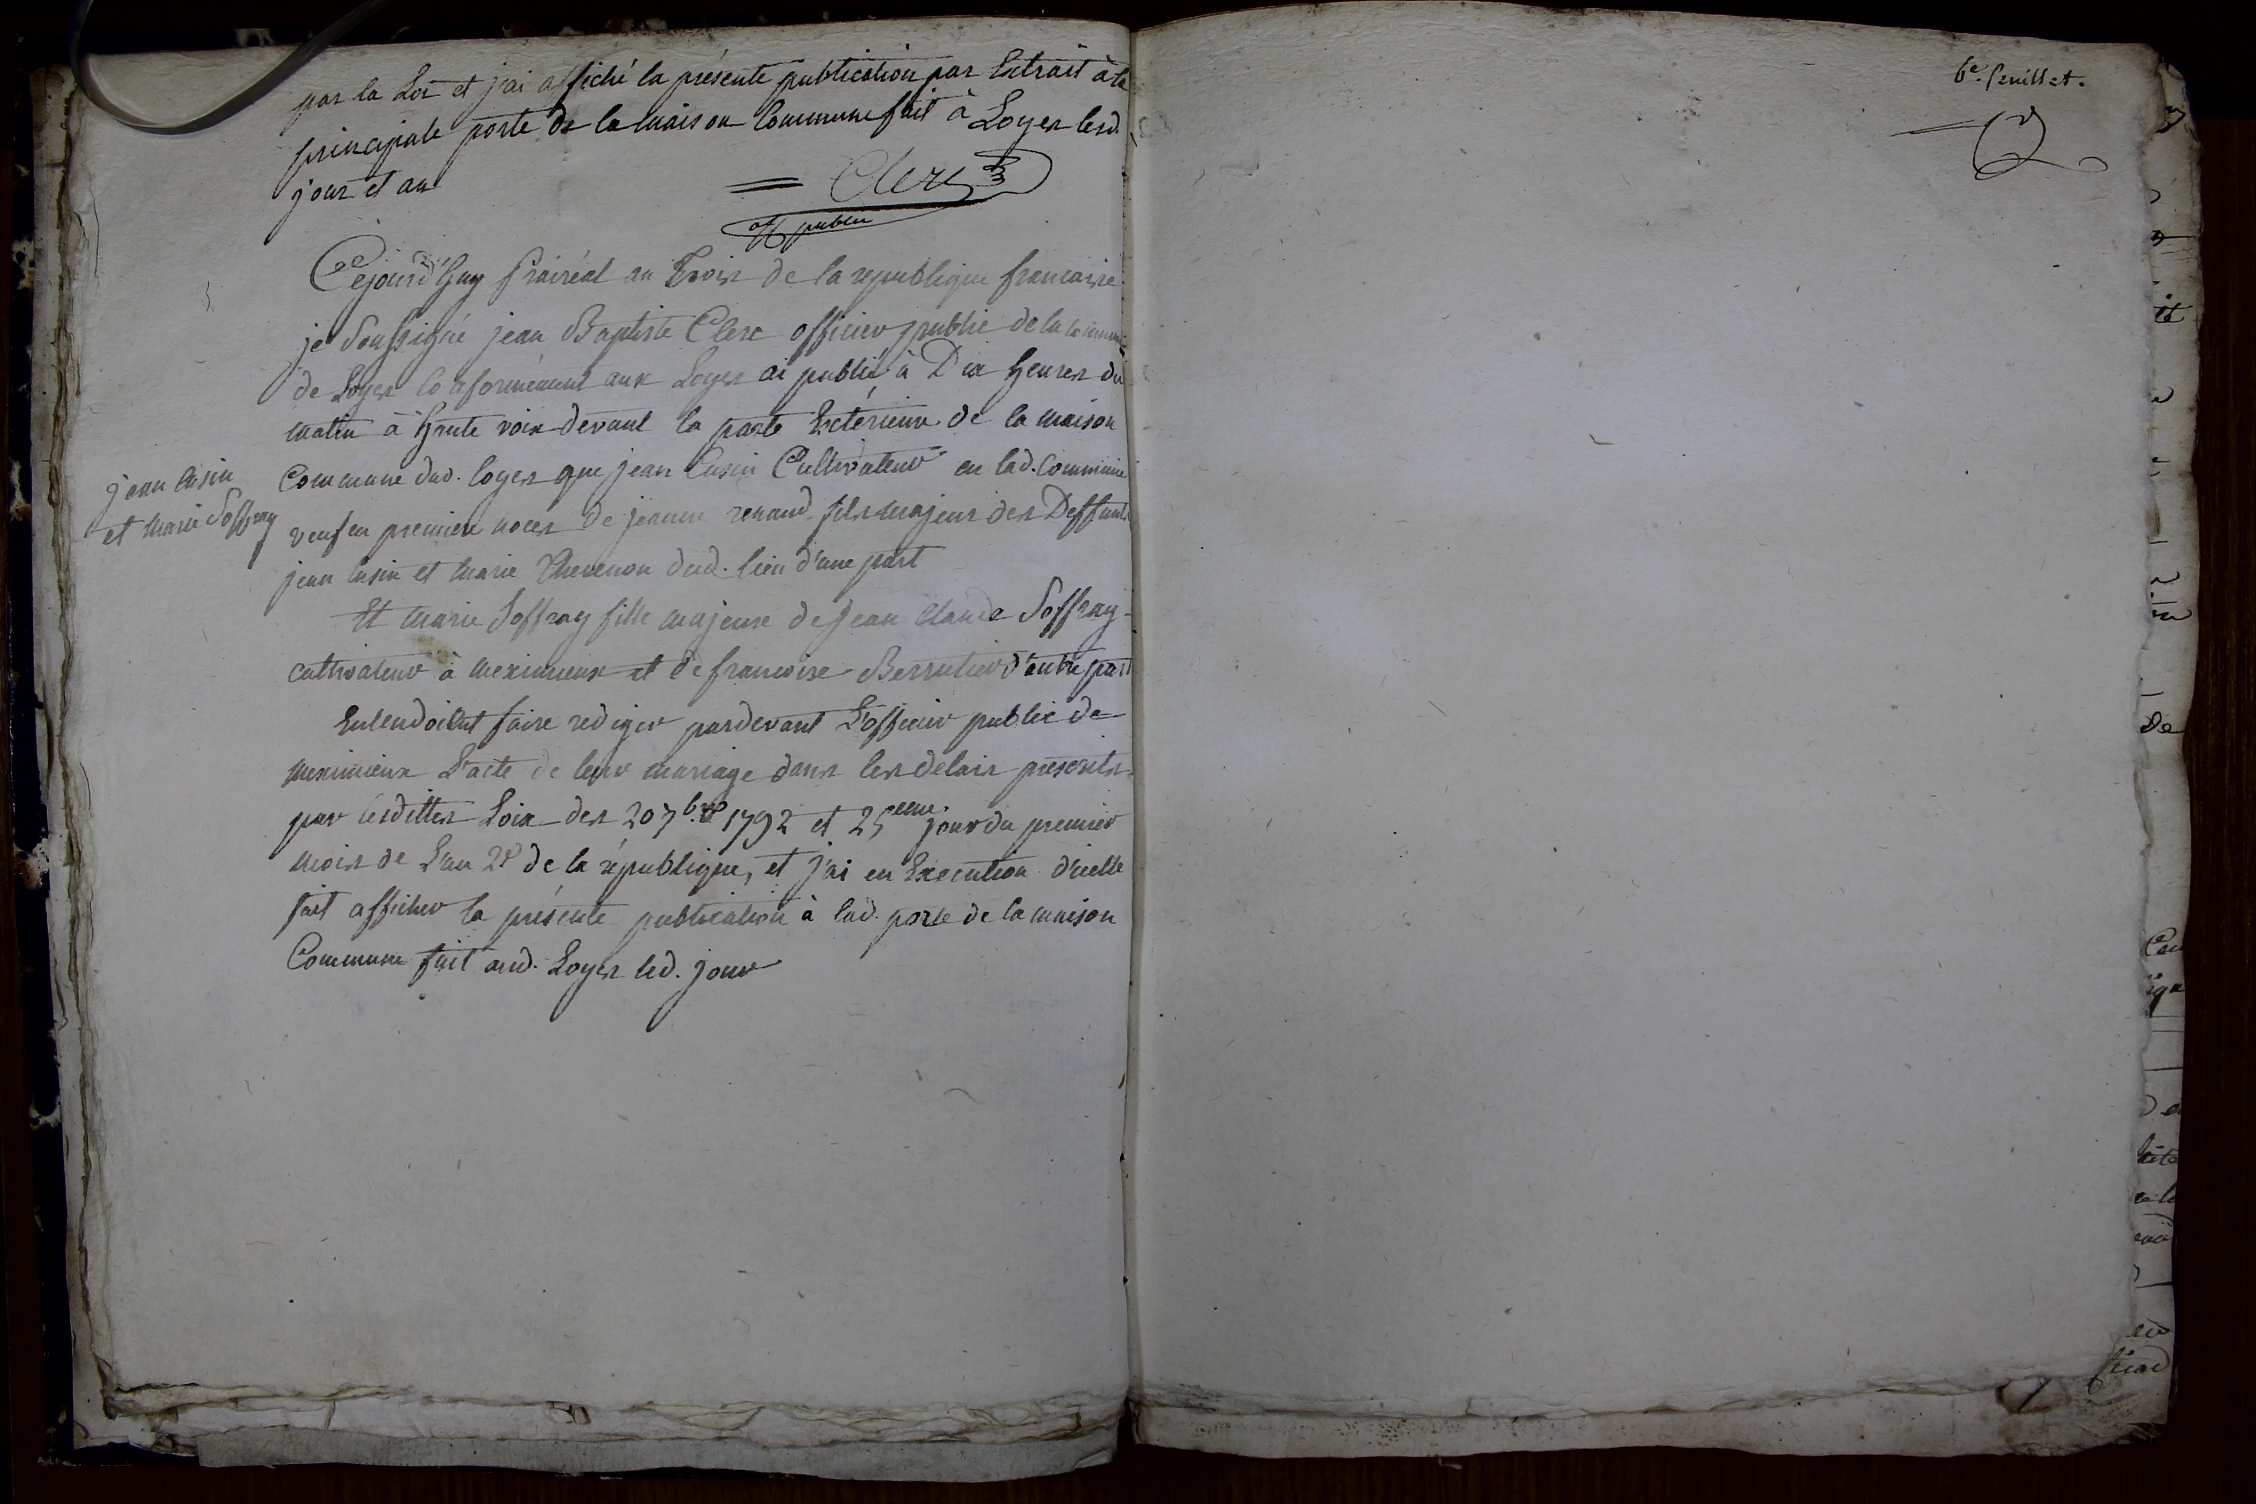 par la Loi et j'ai affiché la présente publication par Extrait à la
principale porte de la maison Commune fait à Loyes lesd.
jour et an
= Clerc
off publie
Cejourd'huy Prairéal an Trois de la republique francaise
je Soussigné jean Baptiste Clerc officier public de la commune
de Loyes Conformément aux Loyes ai publié à Dix heures du
matin à Haute voix devant la porte Extérieure de la maison
Commune dud. loyes que jean Cusin Cultivateur en lad. Commune
veuf en premiere noces de jeanne renaud fils majeur des Deffunts
jean Cusin et marie Thevenon dud. lieu d'une part
jean Cusin
et marie Soffray
Et marie Soffray fille majeure de Jean Claude Soffray
cultivateur à meximieux et de francoise Berrutier d'autre part
Entendoient faire rediger pardevant L'officier public de
meximieux L'acte de leur mariage dans les delais préscrits
par lesdittes Loix des 20 7bre 1792 et 25eme jour du premier
mois de L'an 2e de la république, et j'ai en Execution d'icelle
fait afficher la présente publication à lad. porte de la maison
Commune fait aud. Loyes led. jour
6e. feuillet.